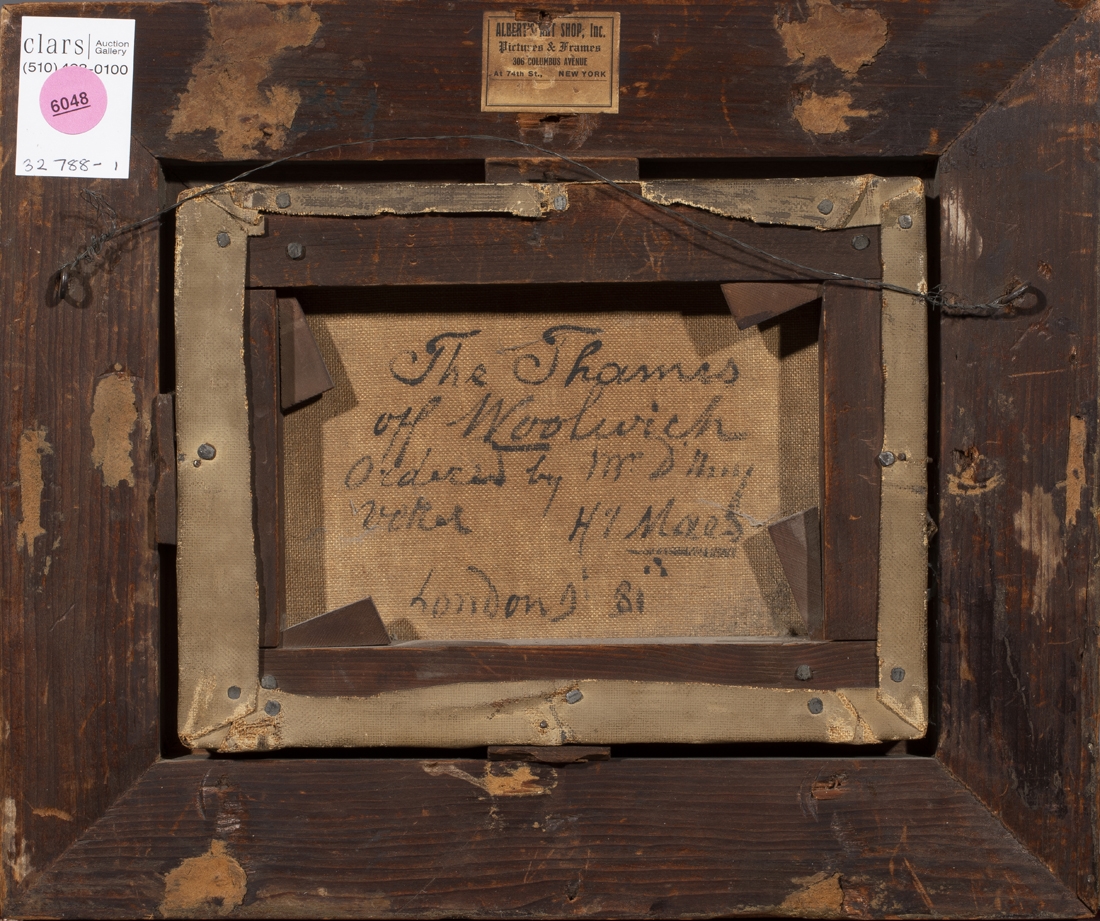 clars Auction Gallery
(510) -0100
6048
32 788-1
ALBERT'S ART SHOP, Inc.
Pictures & Frames
306 COLUMBUS AVENUE
At 74th St., NEW YORK
The Thames
off Woolwich
Ordered by Mr
London 81